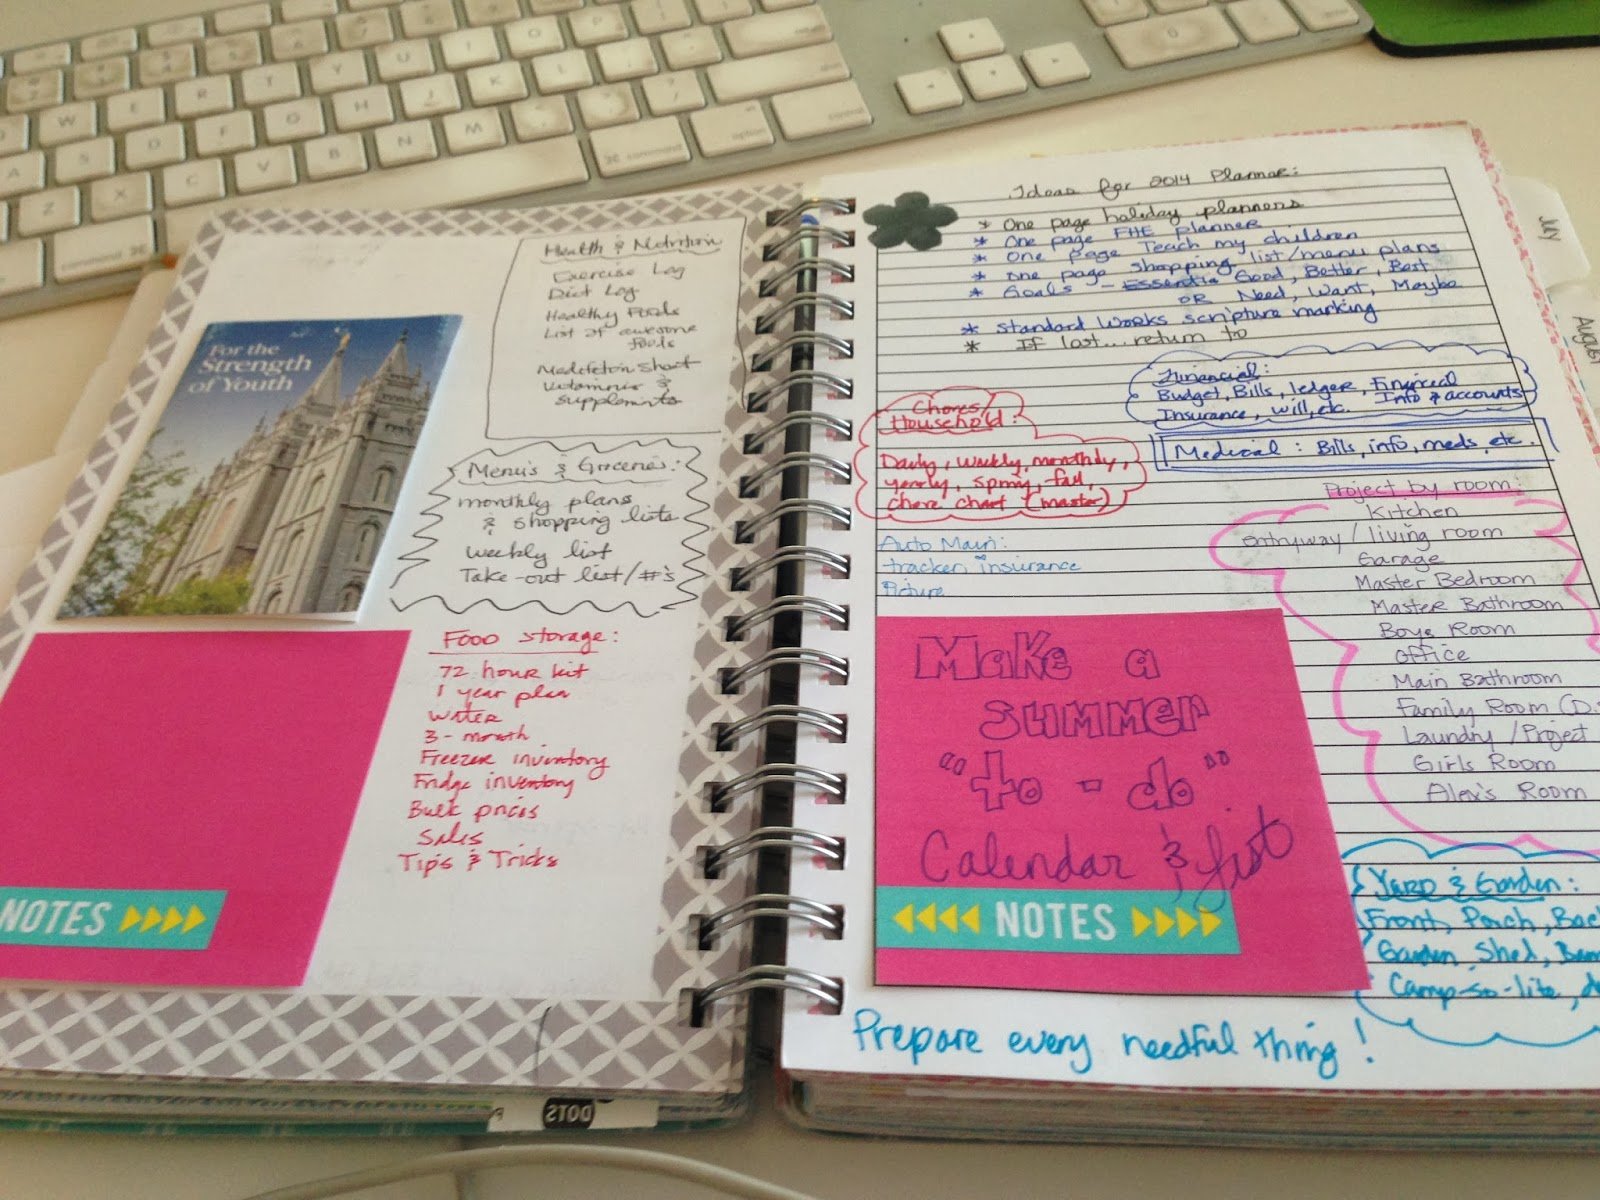 For the
Strength
of Youth
Health & Nutrition
Exercise Log
Diet Log
Healthy Foods
List of awesome
foods
Vitamins &
supplements
Menu's & Groceries:
monthly plans
& shopping lists
weekly list
Take-out list/#'s
Food storage:
72 hour kit
1 year plan
Water
3-month
Freezer inventory
Fridge inventory
Bulk prices
Sales
Tips & Tricks
NOTES
DOTS
Ideas for 2014 Planner:
* One page holiday planners
* One page FHE planner
* One page Teach my children
* One page shopping list/menu plans
* Goals - Essentia Good, Better, Best
OR Need, Want, Maybe
* Standard Works scripture marking
* If lost... return to
Financial:
Budget, Bills, ledger, Financial
Insurance, will, etc. Info & accounts
Medical: Bills, info, meds, etc.
Chores/
Household:
Daily, weekly, monthly,
yearly, spring, fall,
chore chart (master)
Auto Main:
insurance
Picture
Project by room:
Kitchen
entryway/living room
Garage
Master Bedroom
Master Bathroom
Boys Room
Office
Main Bathroom
Family Room (D.
Laundry/Project
Girls Room
Alex's Room
Make a
Summer
"to-do"
Calendar & list
NOTES
Yard & Garden:
Front, Porch, Back
Garden, Shed,
Camp-so-lite,
Prepare every needful thing!
July
August
W
E
R
T
Y
U
I
O
P
A
S
D
F
G
H
J
K
L
Z
X
C
V
B
N
M
command
option
control
command